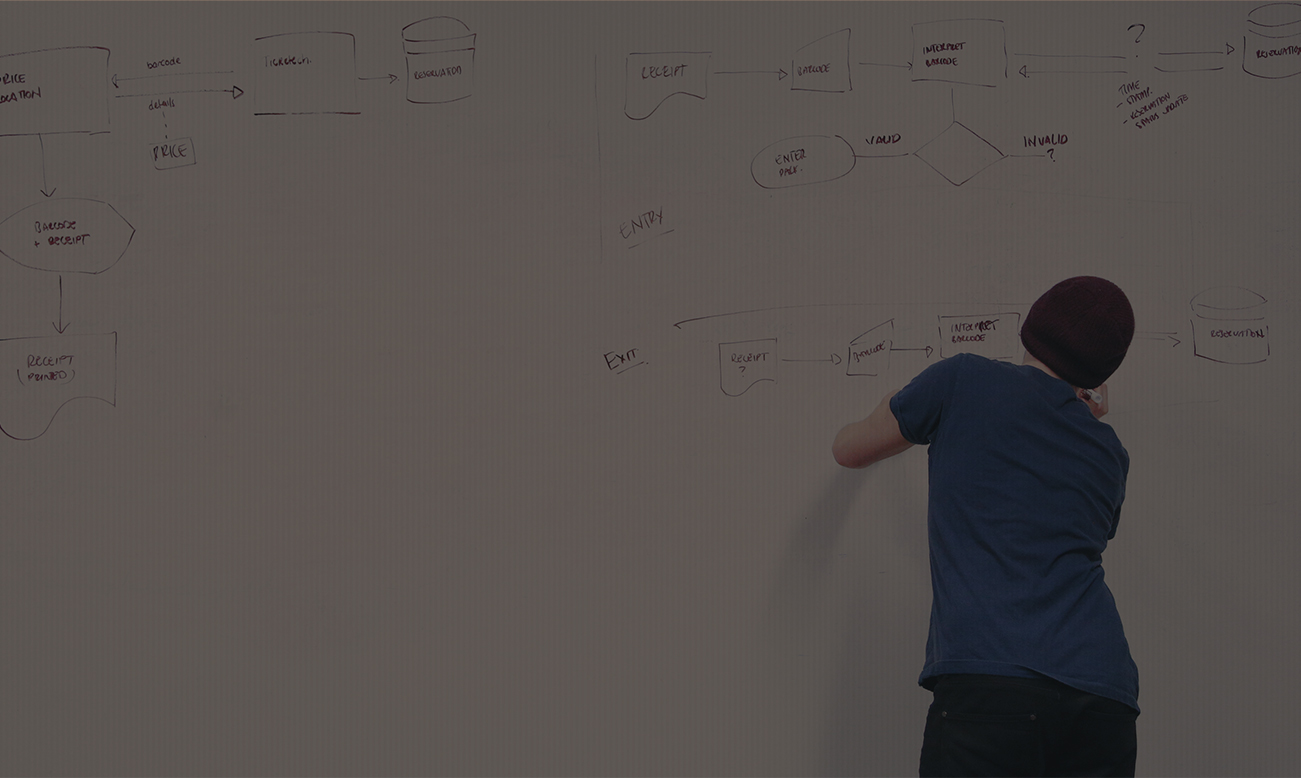 PRICE
LOCATION
barcode
details
PRICE
RESERVATION
BARCODE
+ RECEIPT
RECEIPT
(PRINTED)
RECEIPT
BARCODE
INTERPRET
BARCODE
?
RESERVATION
TIME
- STAMP.
- RESERVATION
STATUS UPDATE
VALID
INVALID
?
ENTER
ENTRY
EXIT.
RECEIPT
?
BARCODE
INTERPRET
BARCODE
RESERVATION